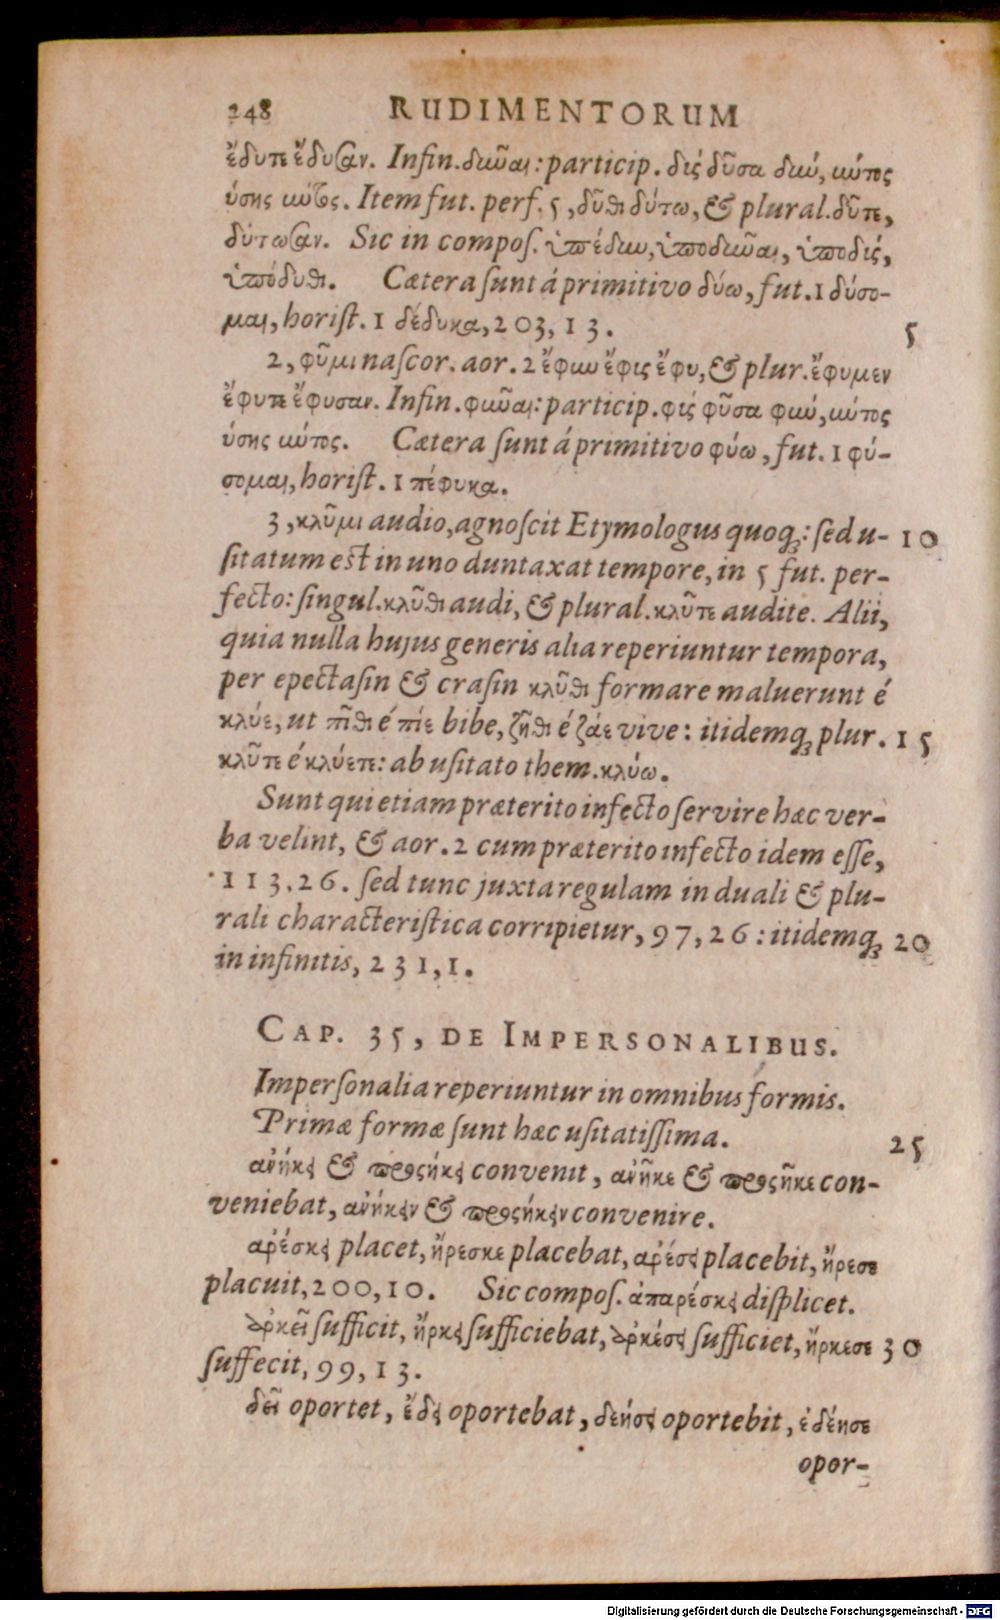 248 RUDIMENTORUM
ἔδυτε ἔδυσαν. Infin. δῦναι: particip. δὺς δῦσα δὺν, ύντος
ύσης ύντος. Item fut. perf. 5, δῦθι δύτω, & plural. δῦτε,
δύτωσαν. Sic in compoſ. ὑπέδυν, ὑποδῦναι, ὑποδὺς,
ὑπόδυθι. Cætera ſunt á primitivo δύω, fut. 1 δύσο-
μαι, horiſt. 1 δέδυκα, 203, 13.
5
2, φῦμι naſcor. aor. 2 ἔφυν ἔφυς ἔφυ, & plur. ἔφυμεν
ἔφυτε ἔφυσαν. Infin. φῦναι: particip. φὺς φῦσα φὺν, ύντος
ύσης ύντος. Cætera ſunt á primitivo φύω, fut. 1 φύ-
σομαι, horiſt. 1 πέφυκα.
3, κλῦμι audio, agnoſcit Etymologus quoqꝫ: ſed u- 10
ſitatum eſt in uno duntaxat tempore, in 5 fut. per-
fecto: ſingul. κλῦθι audi, & plural. κλῦτε audite. Alii,
quia nulla hujus generis alia reperiuntur tempora,
per epectaſin & craſin κλῦθι formare maluerunt é
κλύε, ut πῖθι é πίε bibe, ζῆθι é ζάε vive: itidemqꝫ plur. 15
κλῦτε é κλύετε: ab uſitato them. κλύω.
Sunt qui etiam præterito infecto ſervire hæc ver-
ba velint, & aor. 2 cum præterito infecto idem eſſe,
113, 26. ſed tunc juxta regulam in duali & plu-
rali characteriſtica corripietur, 97, 26: itidemqꝫ 20
in infinitis, 231, 1.
CAP. 35, DE IMPERSONALIBUS.
Imperſonalia reperiuntur in omnibus formis.
Primæ formæ ſunt hæc uſitatiſſima.
25
ἀνήκει & προςήκει convenit, ἀνῆκε & προςῆκε con-
veniebat, ἀνήκειν & προςήκειν convenire.
ἀρέσκει placet, ἤρεσκε placebat, ἀρέσει placebit, ἤρεσε
placuit, 200, 10. Sic compoſ. ἀπαρέσκει diſplicet.
ἀρκεῖ ſufficit, ἤρκει ſufficiebat, ἀρκέσει ſufficiet, ἤρκεσε 30
ſuffecit, 99, 13.
δεῖ oportet, ἔδει oportebat, δεήσει oportebit, ἐδέησε
opor-
Digitalisierung gefördert durch die Deutsche Forschungsgemeinschaft - DFG